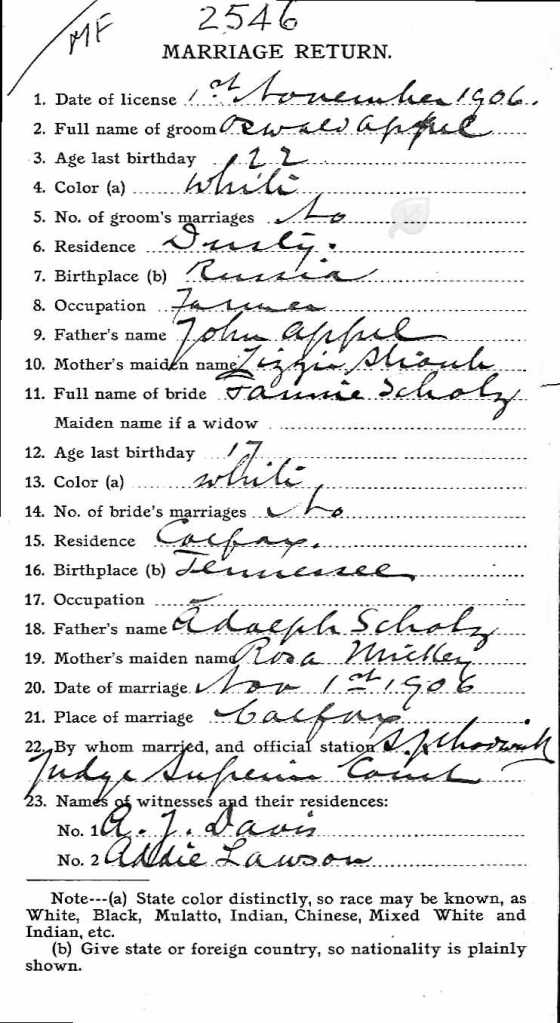 MF
2546
MARRIAGE RETURN.
1. Date of license 1st November 1906.
2. Full name of groom Oswald Appel
3. Age last birthday 22
4. Color (a) White
5. No. of groom's marriages No
6. Residence Dusty.
7. Birthplace (b) Russia
8. Occupation Farmer
9. Father's name John Appel
10. Mother's maiden name Lizzie
11. Full name of bride Fannie Scholz
Maiden name if a widow
12. Age last birthday 17
13. Color (a) White
14. No. of bride's marriages No
15. Residence Colfax.
16. Birthplace (b) Tennessee
17. Occupation –
18. Father's name Adolph Scholz
19. Mother's maiden name Rosa
20. Date of marriage Nov 1st 1906
21. Place of marriage Colfax
22. By whom married, and official station
Judge Superior Court
23. Names of witnesses and their residences:
No. 1 A. J. Davis
No. 2 Addie Lawson
Note---(a) State color distinctly, so race may be known, as
White, Black, Mulatto, Indian, Chinese, Mixed White and
Indian, etc.
(b) Give state or foreign country, so nationality is plainly
shown.